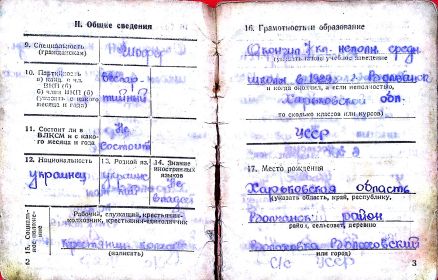 II. Общие сведения
9. Специальность
(гражданская)
Шофер
10. Партийность
беспар-
тийный
(указать с какого
месяца и года)
11. Состоит ли в
ВЛКСМ и с како-
го месяца и года
Не
состоит
12. Национальность
украинец
13. Родной яз.
украинс
14. Знание
иностранных
языков
Не
владеет
15. Социаль-
ное положе-
ние
Рабочий, служащий, крестьянин-
колхозник, крестьянин-единоличник
Крестьянин колхоз
(написать)
2
16. Грамотность и образование
Окончил 7 кл. неполн. средн.
(указать какое учебное заведение
школы в 1929 г.
и когда окончил, а если неполностью,
Харьковской обл.
то сколько классов или курсов)
УССР
17. Место рождения
Харьковская область
(указать область, край, республику,
район
район, сельсовет, деревню
или город)
с/с УССР
3